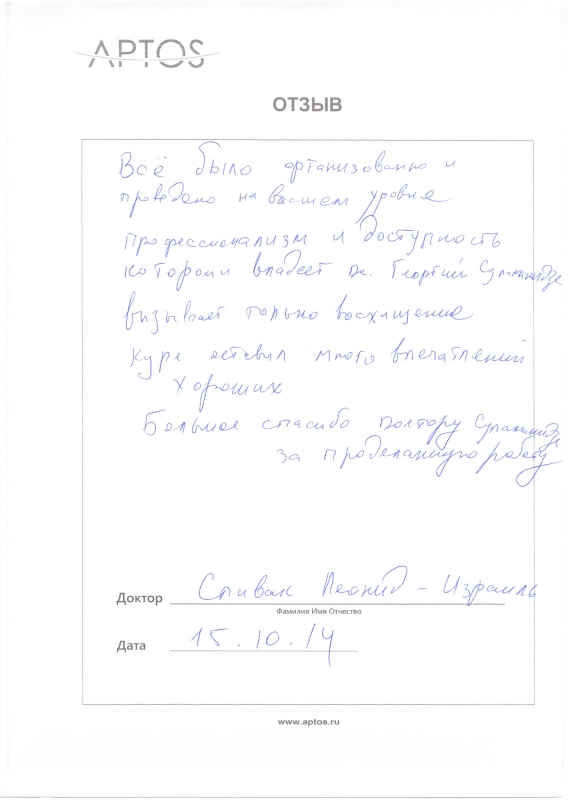 APTOS
ОТЗЫВ
Всё было организованно и
проведено на высшем уровне
Профессионализм и доступность
которыми владеет Dr. Георгий Суламанидзе
вызывает только восхищение
Курс оставил много впечатлений
хороших
Большое спасибо доктору Суламанидзе
за проделанную работу
Доктор Спивак Леонид - Израиль
Фамилия Имя Отчество
Дата 15.10.14
www.aptos.ru